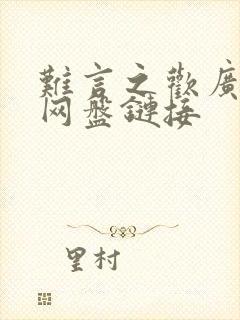 難言之歡廣
网盤鏈接
里村